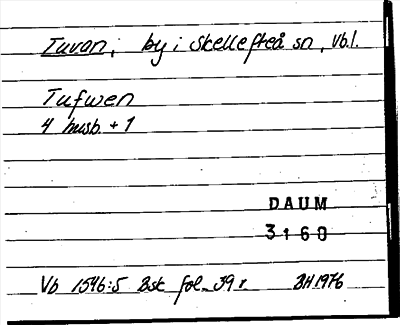 Tuvan, by i Skellefteå sn, Vbl.
Tufwen
4 husb. + 1
DAUM
3160
Vb 1546:5 Bsk fol. 39 r BH 1976